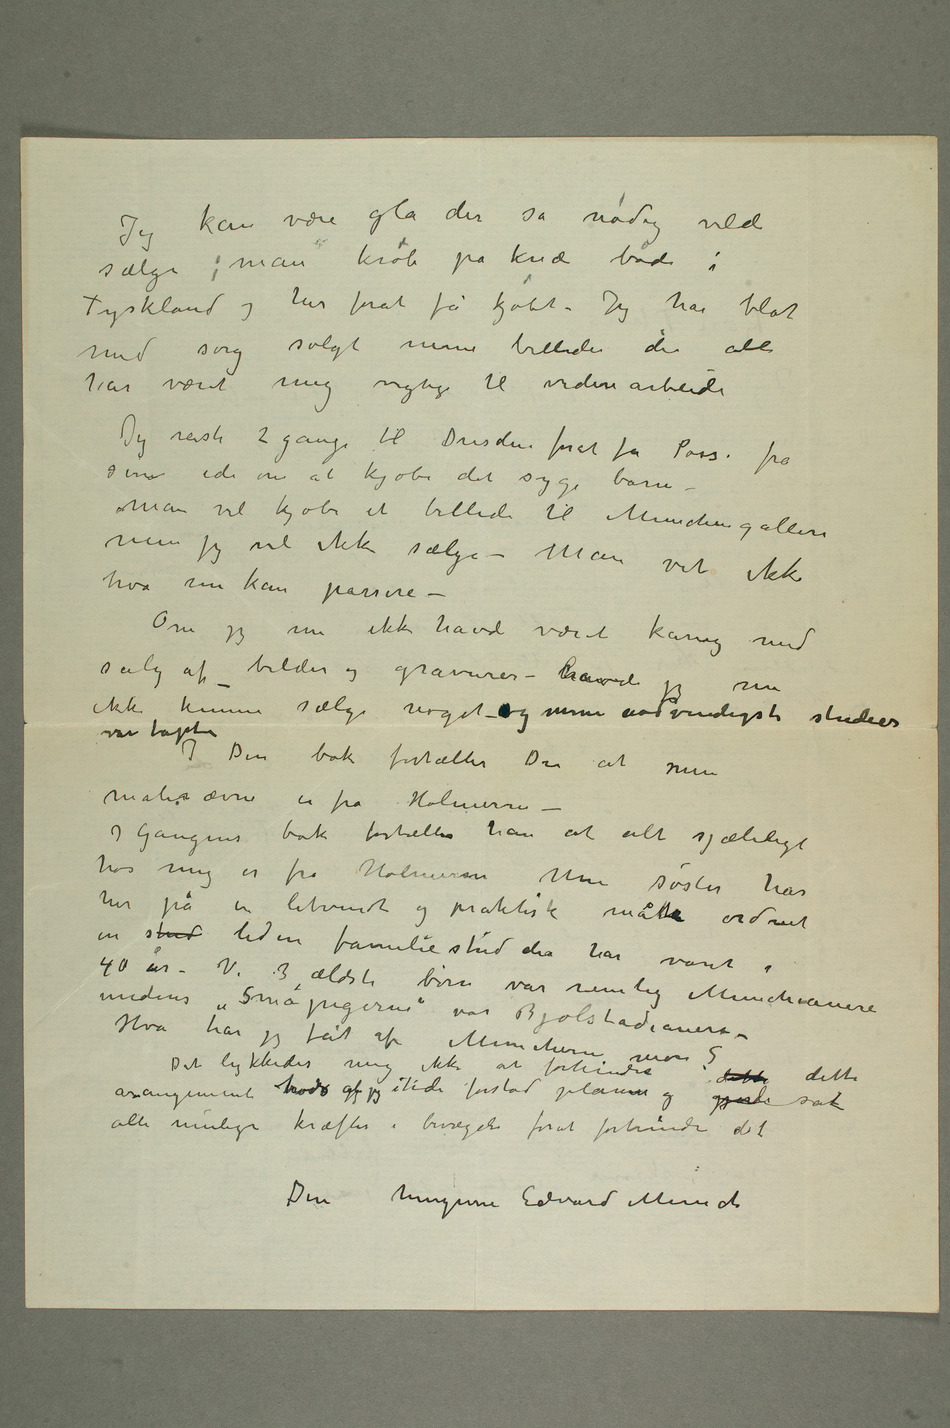 Jeg kan være gla der så nødig vilde
sælge; man krøb på knæ både i
Tyskland og her forat få kjøbt – Jeg har blot
med sorg solgt mine billeder der alle
har været mig vigtige til videre arbeide
Jeg reiste 2 gange til Dresden forat få Poss. fra
sin ide om at kjøbe det syge barn –
man vil kjøbe et billede til Münchengalleri
men jeg vil ikke sælge – Man vet ikke
hva nu kan passere –
Om jeg nu ikke havde været karrig med
salg af billeder og gravurer – havde jeg nu
ikke kunne sælge noget – og mine nødvendigste studier
var tapte
I Din bok fortæller Du at min
malerævne er fra Holmerne –
I Gaugins bok fortælles han at alt sjæleligt
hos mig er fra Holmerne Min søster har
her på en letvindt og praktisk måte ordnet
en stud liden familiestrid der har varet i
40 år – Vi 3 ældste børn var nemlig Munchianere
imedens „Småpigerne" var Bjølstadianere –
Hva har jeg fåt af Muncherne mon?
Det lykkedes mig ikke at forhindre dette dette
arangement trods at jeg itide forstod planen og gjorde satte
alle mulige kræfter i bevægelse forat forhindre det
Din hengivne Edvard Munch